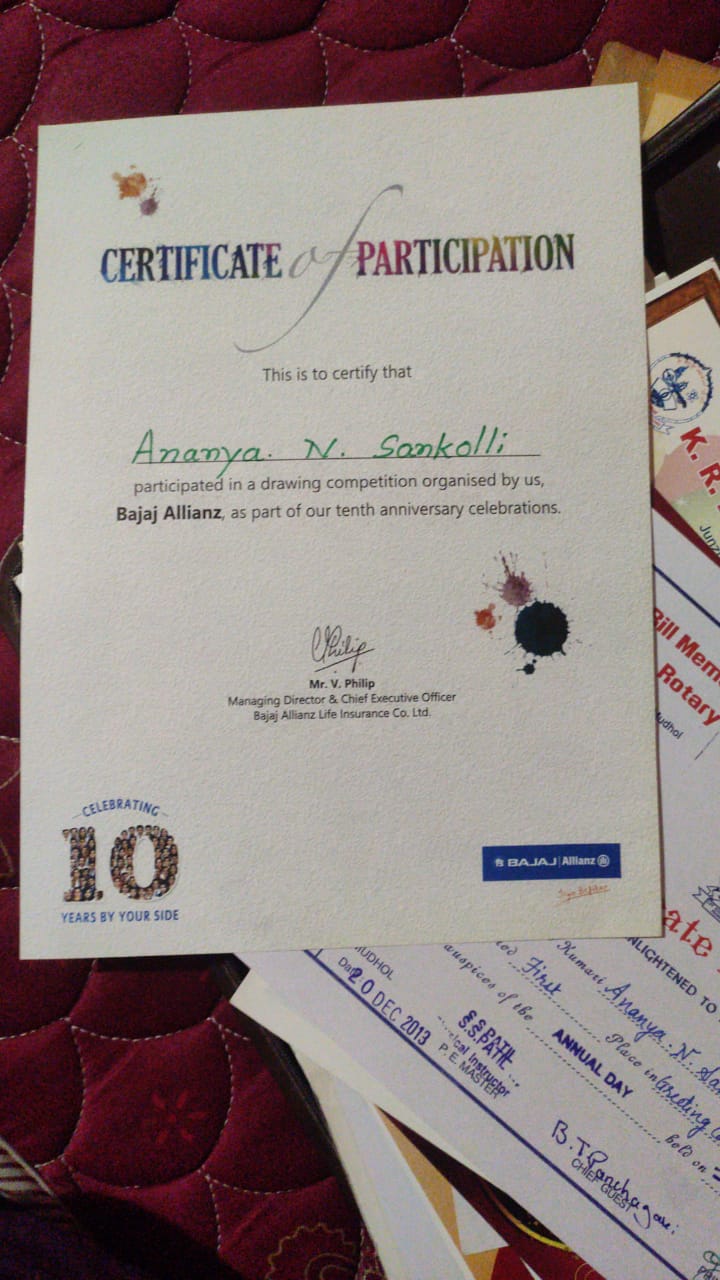 CERTIFICATE of PARTICIPATION
This is to certify that
Ananya. N. Sankolli
participated in a drawing competition organised by us,
Bajaj Allianz, as part of our tenth anniversary celebrations.
Mr. V. Philip
Managing Director & Chief Executive Officer
Bajaj Allianz Life Insurance Co. Ltd.
CELEBRATING
10
YEARS BY YOUR SIDE
BAJAJ Allianz
K. R.
Bill Mem
Rotary
Mudhol
ate
NLIGHTENED TO
Kumari Ananya. N. San
First Place in Greeting
auspices of the ANNUAL DAY
held on
MUDHOL
20 DEC 2013
S.S.PATIL
P. E. MASTER
CHIEF GUEST